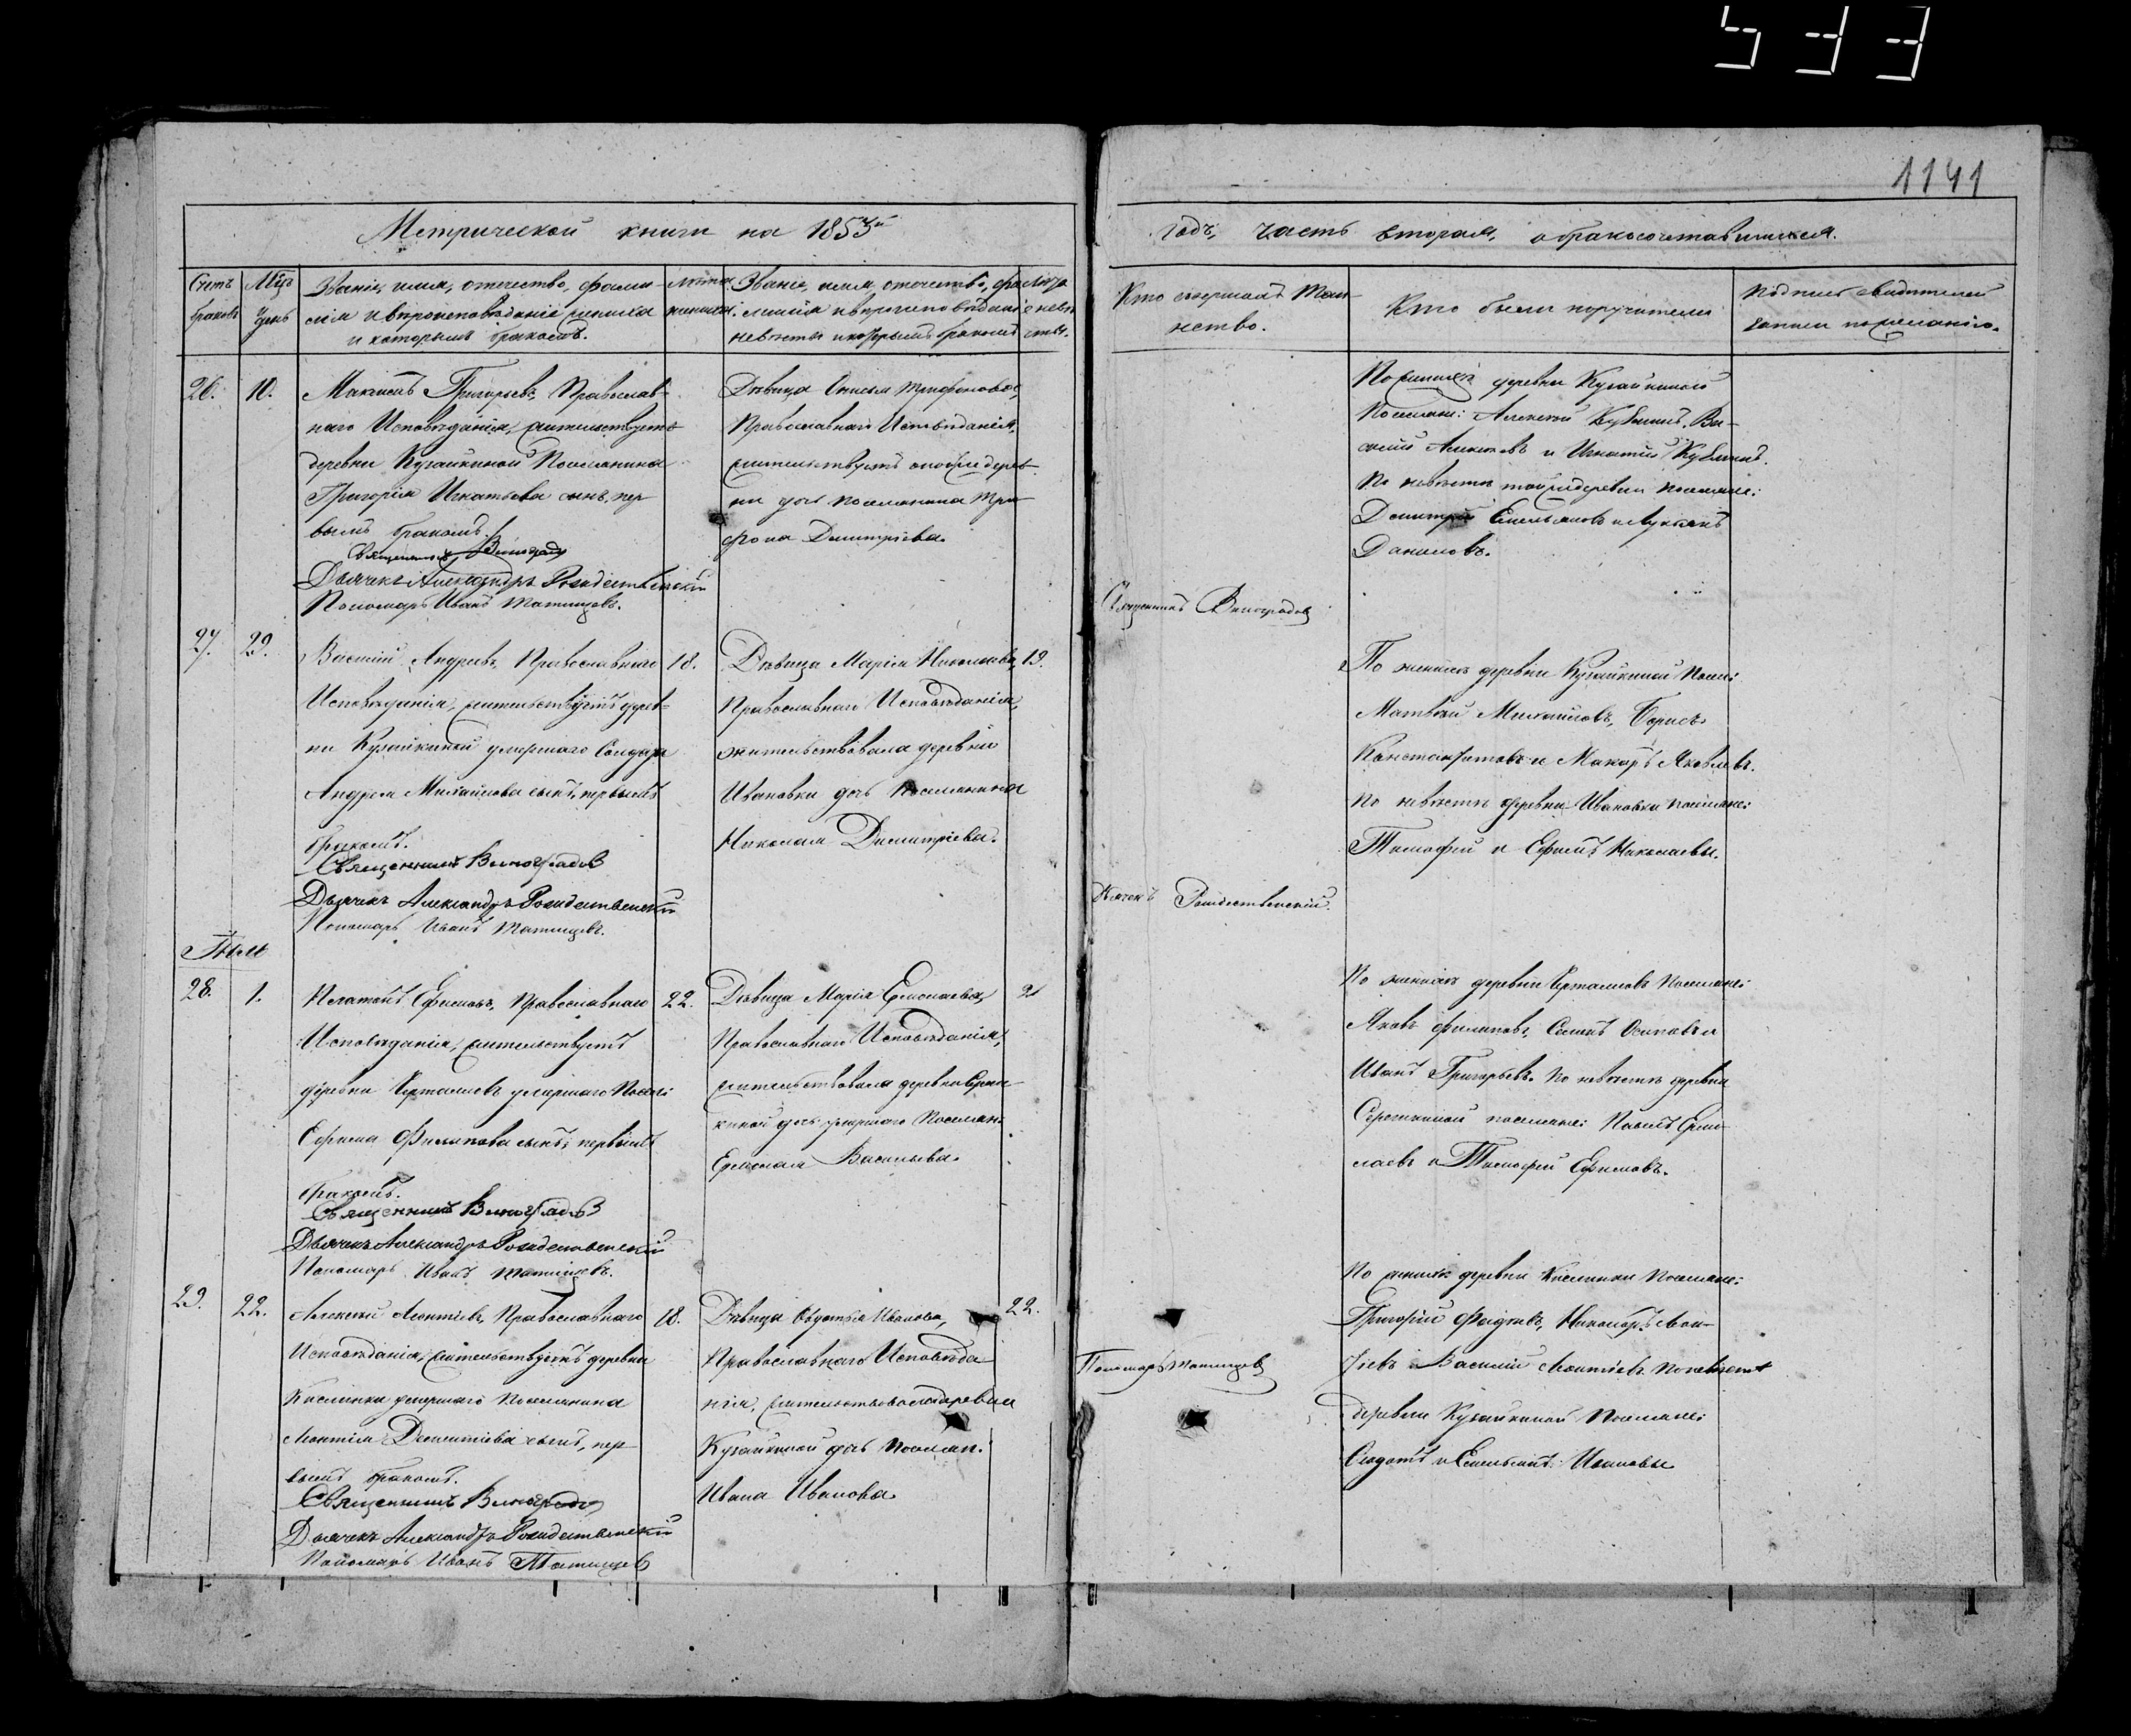 533
1141
Метрической книги на 1853й
годъ, часть вторая, о бракосочетавшихся.
Счетъ браковъ
Мѣцъ день
Званіе, имя, отечество, фами-
лія и вѣроисповѣданіе жениха
и которымъ бракомъ.
Лѣта жениха.
Званіе, имя, отечество, фа-
милія и вѣроисповѣданіе
невѣсты и которымъ бракомъ
Лѣта невѣсты.
Кто совершалъ Таи-
нство.
Кто были поручители
Подпись свидѣтелей
записи по желанію.
26.
10.
Григорьевъ, Православ-
наго Исповѣданія, жительствуетъ
деревни Кузайкиной Поселянина
Григорія Игнатьева сынъ, пер
вымъ бракомъ.
Священникъ Виноградов
Дьячекъ Александръ Рождественскій
Пономарь Иванъ Татищевъ.
Дѣвица Трифонова,
Православнаго Исповѣданія,
жительствуетъ дерев-
ни дочь поселянина Три
фона Димитріева.
По женихѣ деревни Кузайкиной
Поселяне: Алексѣй Ва-
силій Алексѣевъ и Игнатій
По невѣстѣ той же деревни поселяне:
Димитрій Емельяновъ и
Даниловъ.
Священникъ Виноградов
27.
29.
Василій Андреевъ, Православнаго
Исповѣданія, жительствуетъ дерев-
ни Кузайкиной умершаго Солдата
Андрея Михайлова сынъ, первымъ
бракомъ.
Священникъ Виноградов
Дьячекъ Александръ Рождественскій
Пономарь Иванъ Татищевъ.
18.
Дѣвица Марія Николаева,
Православнаго Исповѣданія,
жительствовала деревни
Ивановки дочь Поселянина
Николая Димитріева.
19.
По женихѣ деревни Кузайкиной Посел:
Матвей Михайловъ, Борисъ
Константиновъ и Макаръ Яковлевъ.
По невѣстѣ деревни Ивановки поселяне:
Тимофей и Ефимъ Николаевы.
Дьячекъ Рождественскій.
28.
1.
Платонъ Ефимовъ, Православнаго
Исповѣданія, жительствуетъ
деревни умершаго Посел:
Ефима Филипова сынъ, первымъ
бракомъ.
Священникъ Виноградов
Дьячекъ Александръ Рождественскій
Пономарь Иванъ Татищевъ.
22.
Дѣвица Марія Ермолаева,
Православнаго Исповѣданія,
жительствовала деревни
киной дочь умершаго Поселян:
Ермолая Васильева.
21
По женихѣ деревни Поселяне:
Яковъ Филиповъ, Семенъ Осиповъ и
Иванъ Григорьевъ. По невѣстѣ деревни
поселяне: Павелъ Ермо-
лаевъ и Тимофей Ефимовъ.
29.
22.
Алексѣй Леонтіевъ, Православнаго
Исповѣданія, жительствуетъ деревни
Кислинки умершаго Поселянина
Леонтія сынъ, пер-
вымъ бракомъ.
Священникъ Виноградов
Дьячекъ Александръ Рождественскій
Пономарь Иванъ Татищев
18.
Дѣвица Авдотья Иванова,
Православнаго Исповѣда-
нія, жительствовала деревни
Кузайкиной дочь Поселян:
Ивана Иванова.
22.
По женихѣ деревни Кислинки Поселяне:
Григорій Никаноръ Леон-
тіевъ Василій Леонтіевъ. По невѣстѣ
деревни Кузайкиной Поселяне:
Федотъ и Емельянъ Ивановы
Пономарь Татищев